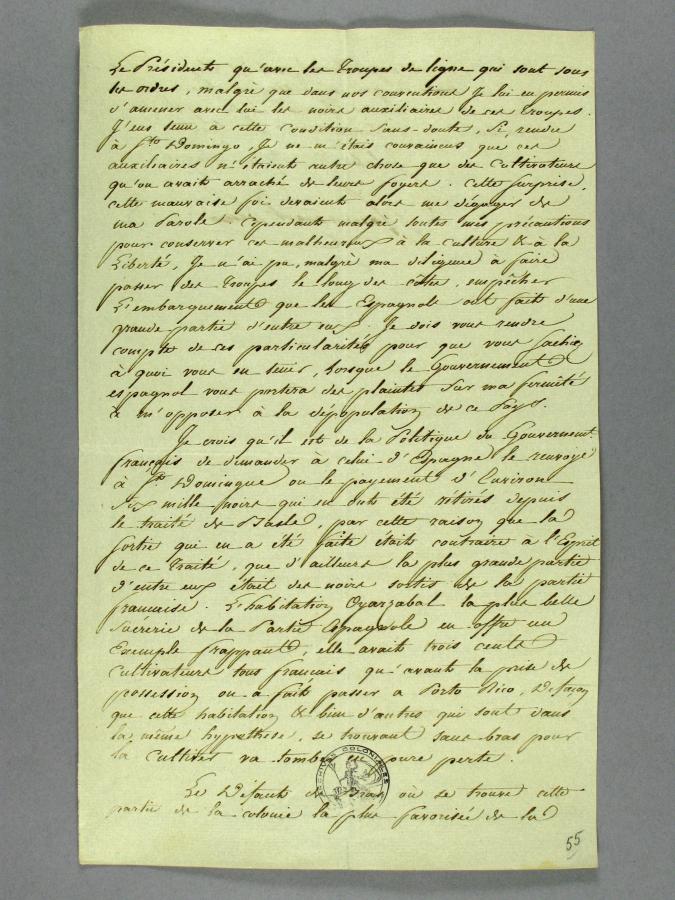 Le Président qu'avec les Troupes de ligne qui sont sous
ses ordres, malgré que dans nos conventions je lui eu permis
d'amener avec lui les noirs auxiliaires de ces troupes.
J'eus tenu à cette condition sans-doute, si, rendu
à Sto Domingo, je ne m'étais convaincu que ces
auxiliaires n'étaient autre chose que des Cultivateurs
qu'on avait arraché de leurs foyers. Cette surprise,
cette mauvaise foi devaient alors me dégager de
ma Parole. Cependant malgré toutes mes précautions
pour conserver ces malheureux à la culture & à la
Liberté, Je n'ai pu, malgré ma diligence à faire
passer des Troupes le long des côtes, empêcher
L'embarquement que les Espagnols ont fait d'une
grande partie d'entre eux. Je dois vous rendre
compte de ces particularités pour que vous sachiez
à quoi vous en tenir, Lorsque le Gouvernement
espagnol vous portera des plaintes sur ma fermeté
à m'opposer à la dépopulation de ce Pays.
Je crois qu'il est de la Politique du Gouvernemt
français de demander à celui d'Espagne le renvoye
à St Domingue ou le payement d'Environ
Six mille noirs qui en ont été retirés depuis
le traité de Basle, par cette raison que la
sortie qui en a été faite était contraire à l'Esprit
de ce Traité, que d'ailleurs la plus grande partie
d'entre eux était des noirs sortis de la partie
francaise. L'habitation Oyarzabal la plus belle
Sucrerie de la Partie Espagnole en offre un
Exemple frappant, elle avait trois cents
Cultivateurs tous francais qu'avant la prise de
possession on a fait passer a Porto Rico, De façon
que cette habitation & bien d'autres qui sont dans
la même hypothèse, se trouvant sans bras pour
la Cultiver va tomber en pure perte.
Le Défaut de Bras où se trouve cette
partie de la colonie la plus favorisée de la
COLONIALES
55